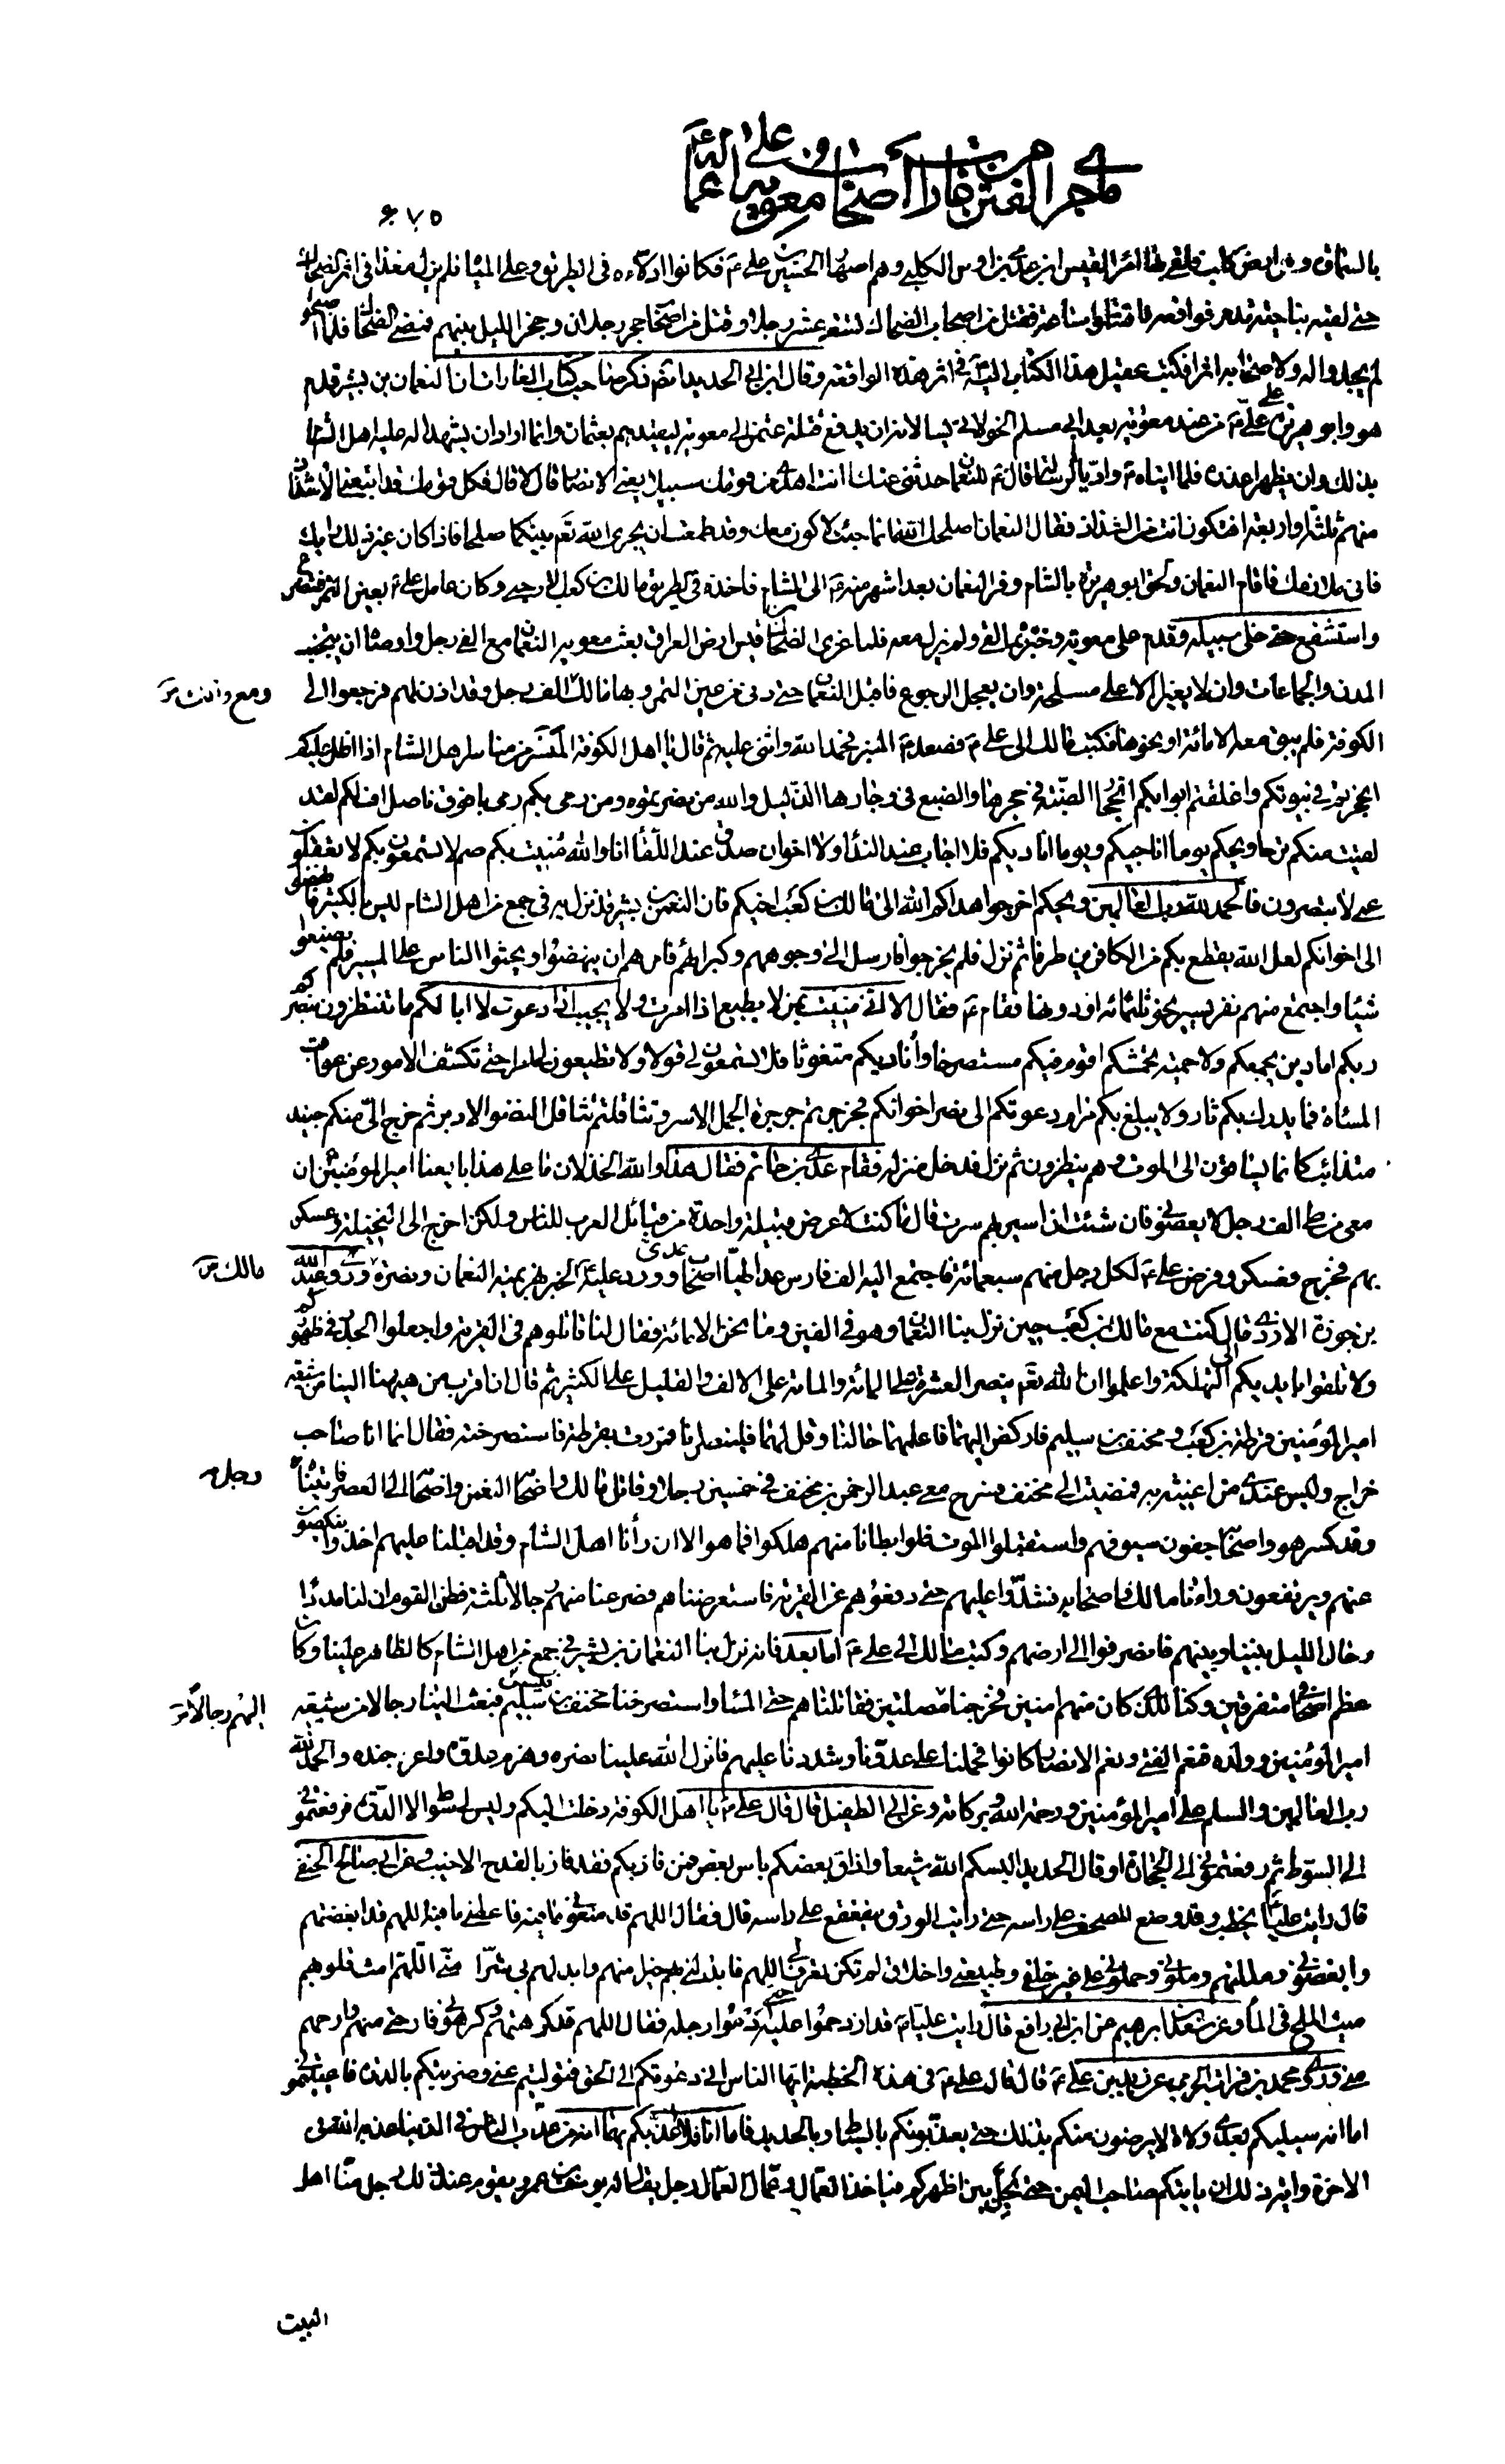 ما جرى من الفتن من غارات أصحاب معوية على أعماله
٦٧٥
بالسماوة وهى ارض كلب فلقى بها امرء القيس ابن عدى بن اوس الكلبى وهم اصهار الحسين بن على ع فكانوا ادلاءه فى الطريق وعلى المياه فلم يزل مغذا فى اثر الضحاك
حتى لقيه بناحية تدمر فواقعه فاقتتلوا ساعة فقتل من اصحاب الضحاك تسعة عشر رجلا وقتل من اصحاب حجر رجلان وحجز الليل بينهم فمضى الضحاك فلما اصبحوا
لم يجدوا له ولاصحابه اثرا فكتب عقيل هذا الكتاب اليه فى اثر هذه الواقعة وقال ابن ابى الحديد ثم ذكر صاحب كتاب الغارات ان النعمان بن بشير قدم
هو وابو هريرة على على ع من عند معوية بعد ابى مسلم الخولانى يسالانه ان يدفع قتلة عثمن الى معوية ليقيدهم بعثمان وانما اراد ان يشهدا له عليه اهل الشام
بذلك وان يظهرا عذره فلما اتياه ع واديا الرسالة قال ع للنعمان حدثنى عنك اانت اهدى من قومك سبيلا يعنى الانصار قال لا قال فكل قومك قد اتبعنى الا شذاذ
منهم ثلثة او اربعة افتكون انت من الشذاذ فقال النعمان اصلحك الله انما جئت لاكون معك وقد طمعت ان يجرى الله تع بينكما صلحا فاذا كان غير ذلك رأيك
فانى ملازمك فاقام النعمان ولحق ابو هريرة بالشام وفر النعمان بعد اشهر منه ع الى الشام فاخذه فى الطريق مالك بن كعب الارحبى وكان عامل على ع بعين التمر فتضرع
واستشفع حتى خلى سبيله وقدم على معوية وخبره بما لقى ولم يزل معه فلما غزى الضحاك بن قيس ارض العراق بعث معوية النعمان مع الفى رجل واوصاه ان يتجنب
المدن والجماعات وان لا يغير الا على مسلحة وان يعجل الرجوع فاقبل النعمان حتى دنى من عين التمر وبها مالك الف رجل وقد اذن لهم فرجعوا الى
الكوفة فلم يبق معه الا مائة او نحوها فكتب مالك الى على ع فصعد ع المنبر فحمد الله واثنى عليه ثم قال يا اهل الكوفة المنسر من مناسر اهل الشام اذا اظل عليكم
انجحرتم فى بيوتكم واغلقتم ابوابكم انجحار الضبة فى جحرها والضبع فى وجارها الذليل والله من نصرتموه ومن رمى بكم رمى بافوق ناصل اف لكم لقد
لقيت منكم ترحا ويحكم يوما اناجيكم ويوما اناديكم فلا اجاب عند النداء ولا اخوان صدق عند اللقاء انا والله منيت بكم صم لا تسمعون بكم لا تعقلون
عمى لا تبصرون فالحمد لله رب العالمين ويحكم اخرجوا هداكم الله الى مالك بن كعب اخيكم فان النعمن بن بشير قد نزل به فى جمع من اهل الشام ليس بالكثير فانهضوا
الى اخوانكم لعل الله يقطع بكم من الكافرين طرفا ثم نزل فلم يخرجوا فارسل الى وجوههم وكبرائهم فامرهم ان ينهضوا ويحثوا الناس على المسير فلم يصنعوا
شيئا واجتمع منهم نفر يسير نحو ثلثمائه او دونها فقام ع فقال الا انى منيت بمن لا يطيع اذا امرت ولا يجيب اذا دعوت لا ابا لكم ما تنتظرون بنصركم
ربكم اما دين يجمعكم ولا حمية تحمشكم اقوم فيكم مستصرخا وأناديكم متغوثا فلا تسمعون لى قولا ولا تطيعون لى امرا حتى تكشف الامور عن عواقب
المساءة فما يدرك بكم ثار ولا يبلغ بكم مرام دعوتكم الى نصر اخوانكم فجرجرتم جرجرة الجمل الاسر وتثاقلتم تثاقل النضو الادبر ثم خرج الى منكم جنيد
متذائب كانما يساقون الى الموت وهم ينظرون ثم نزل فدخل منزله فقام عدى بن حاتم فقال هذا والله الخذلان ما على هذا بايعنا امير المؤمنين ان
معى من طى الف رجل لا يعصونى فان شئت ان اسير بهم سرت قال ما كنت لاعرض قبيلة واحدة من قبائل العرب للناس ولكن اخرج الى النخيلة وعسكر
بهم فخرج فعسكر وفرض على ع لكل رجل منهم سبعمائة فاجتمع اليه الف فارس عدا طيا اصحاب عدى وورد عليه ع الخبر بهزيمة النعمان ونصرة وروى عبد الله
بن حوزة الازدى قال كنت مع مالك بن كعب حين نزل بنا النعمان وهو فى الفين وما نحن الا مائة فقال لنا قاتلوهم فى القرية واجعلوا الجدر فى ظهوركم
ولا تلقوا بايديكم الى التهلكة واعلموا ان الله تع ينصر العشرة على المائة والمائة على الالف والقليل على الكثير ثم قال ان اقرب من هيهنا الينا من شيعة
امير المؤمنين قرظة بن كعب ومخنف بن سليم فاركض اليهما فاعلمهما حالنا وقل لهما فلينصرانا فمررت بقرظة فاستصرخته فقال انما انا صاحب
خراج وليس عندى من اغيثه به فمضيت الى مخنف فسرح معى عبد الرحمن بن مخنف فى خمسين رجلا وقاتل مالك واصحابه النعمن واصحابه الى العصر فاتيناه
وقد كسر هو واصحابه جفون سيوفهم واستقبلوا الموت فلو ابطانا منهم هلكوا فما هو الا ان رأنا اهل الشام وقد اقبلنا عليهم اخذوا ينكصون
عنهم ويرتفعون وراءنا مالك واصحابه فشدوا عليهم حتى دفعوهم عن القرية فاستعرضناهم فصرعنا منهم رجالا ثلثة فظن القوم ان لنا مددا
وحال الليل بيننا وبينهم فانصرفوا الى ارضهم وكتب مالك الى على ع اما بعد فانه نزل بنا النعمان بن بشير فى جمع من اهل الشام كالظاهر علينا وكان
عظم اصحابى متفرقين وكنا للذى كان منهم امنين فخرجنا مصلتين فقاتلناهم حتى المساء واستصرخنا مخنف بن سليم فبعث الينا رجالا من شيعة
امير المؤمنين وولده فنعم الفتى ونعم الانصار كانوا فحملنا على عدونا وشددنا عليهم فانزل الله علينا نصره وهزم عدوه واعز جنده والحمد لله
رب العالمين والسلم على امير المؤمنين ورحمة الله وبركاته وعن ابى الطفيل قال قال على ع يا اهل الكوفة دخلت اليكم وليس لى سوط الا الدرة فرفعتمونى
الى السوط ثم رفعتمونى الى الحجارة او قال الحديد البسكم الله شيعا واذاق بعضكم باس بعض فمن فاز بكم فقد فاز بالقدح الاخيب وعن ابى صالح الحنفى
قال رايت عليا ع يخطب وقد وضع المصحف على راسه حتى رايت الورق يتقعقع على راسه قال فقال اللهم قد منعونى ما فيه فاعطنى ما فيه اللهم قد ابغضتهم
وابغضونى ومللتهم وملونى وحملونى على غير خلقى وطبيعتى واخلاق لم تكن تعرف لى اللهم فابدلنى بهم خيرا منهم وابدلهم بى شرا منى اللهم امث قلوبهم
ميث الملح فى الماء وعن سعد ابرهيم عن ابن ابى رافع قال رايت عليا ع قد ازدحموا عليه حتى ادموا رجله فقال اللهم قد كرهتهم وكرهونى فارحنى منهم وارحهم
منى وروى محمد بن فرات الجرمى عن زيد بن على ع قال قال على ع فى هذه الخطبة ايها الناس انى دعوتكم الى الحق فتوليتم عنى وضربتكم بالدرة فاعييتمونى
اما انه سيليكم بعدى ولاة لا يرضون منكم بذلك حتى يعذبوكم بالسياط وبالحديد فاما انا فلا اعذبكم بهما انه من عذب الناس فى الدنيا عذبه الله فى
الاخرة واية ذلك ان ياتيكم صاحب اليمن حتى يحل بين اظهركم فياخذ العمال وعمال العمال رجل يقال له يوسف بن عمرو ويقوم عند ذلك رجل منا اهل
ومع
مالك
رجل
اليهم رجالا
البيت